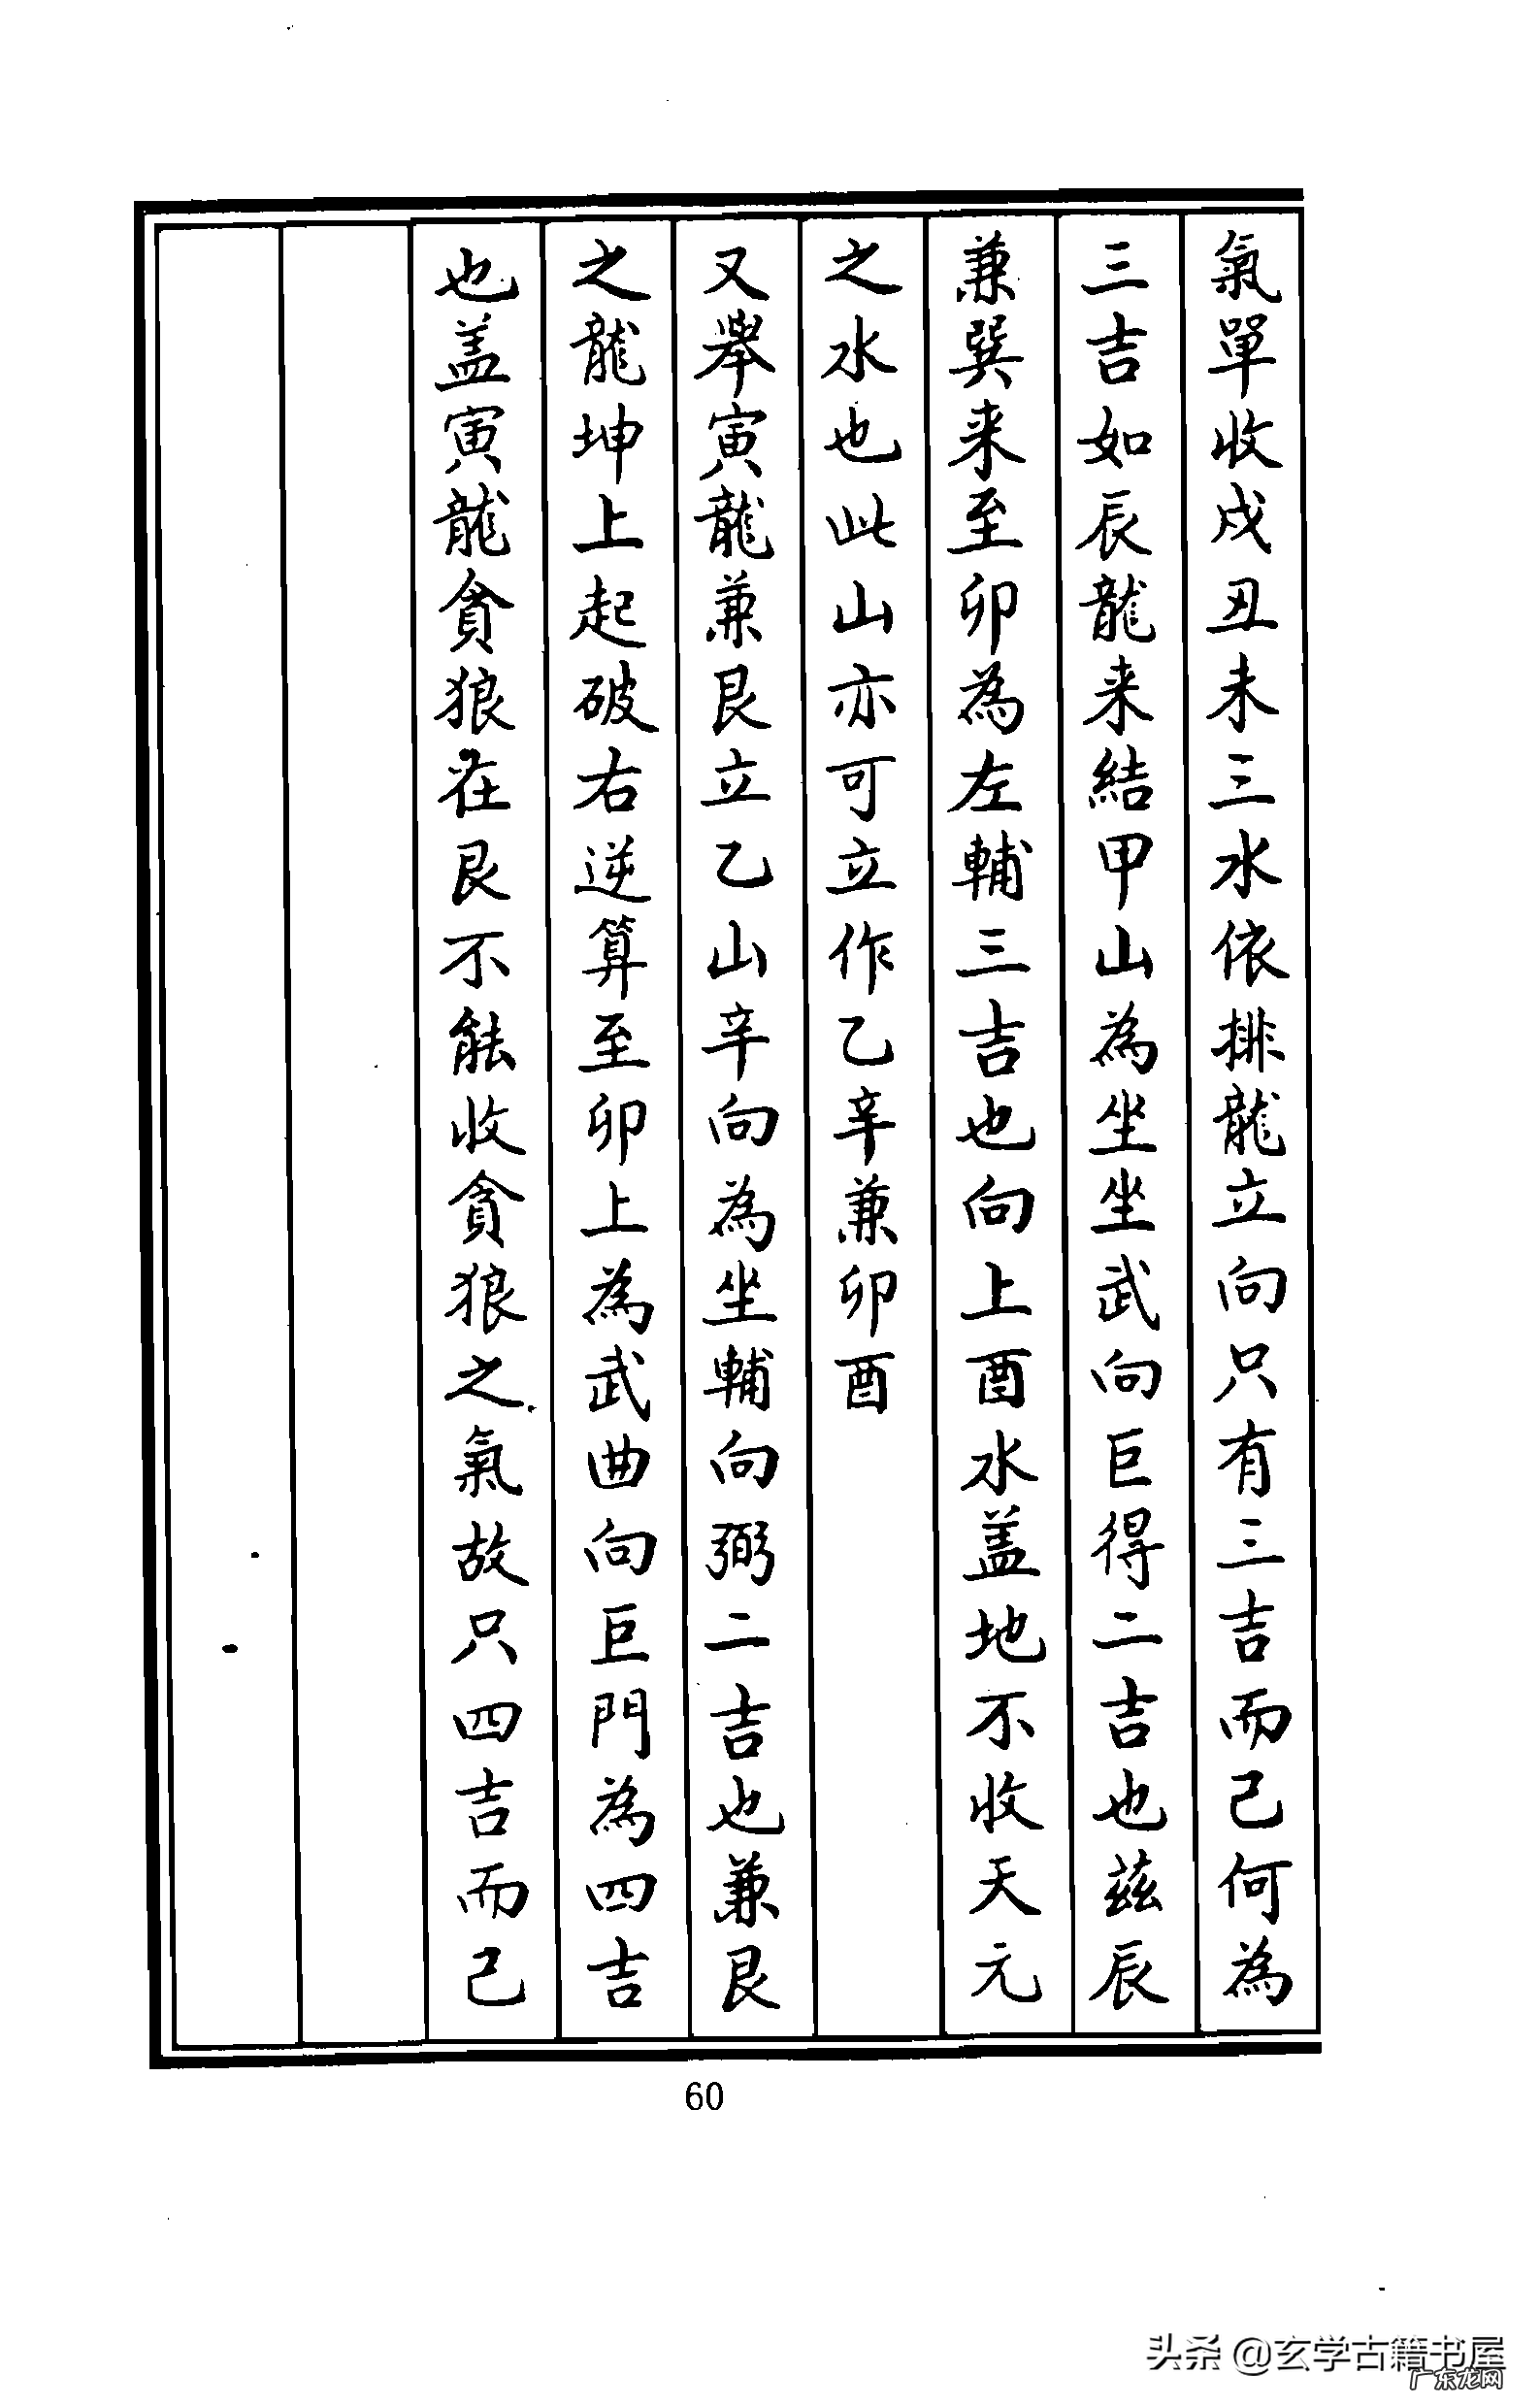 氣單收戌丑未三水依排龍立向只有三吉而已何為
三吉如辰龍来結甲山為坐坐武向巨得二吉也茲辰
兼巽来至卯為左輔三吉也向上酉水盖地不收天元
之水也此山亦可立作乙辛兼卯酉
又舉寅龍兼艮立乙山辛向為坐輔向弼二吉也兼艮
之龍坤上起破右逆算至卯上為武曲向巨門為四吉
也盖寅龍貪狼在艮不能收貪狼之氣故只四吉而已
60
头条 @玄学古籍书屋
广东龙网